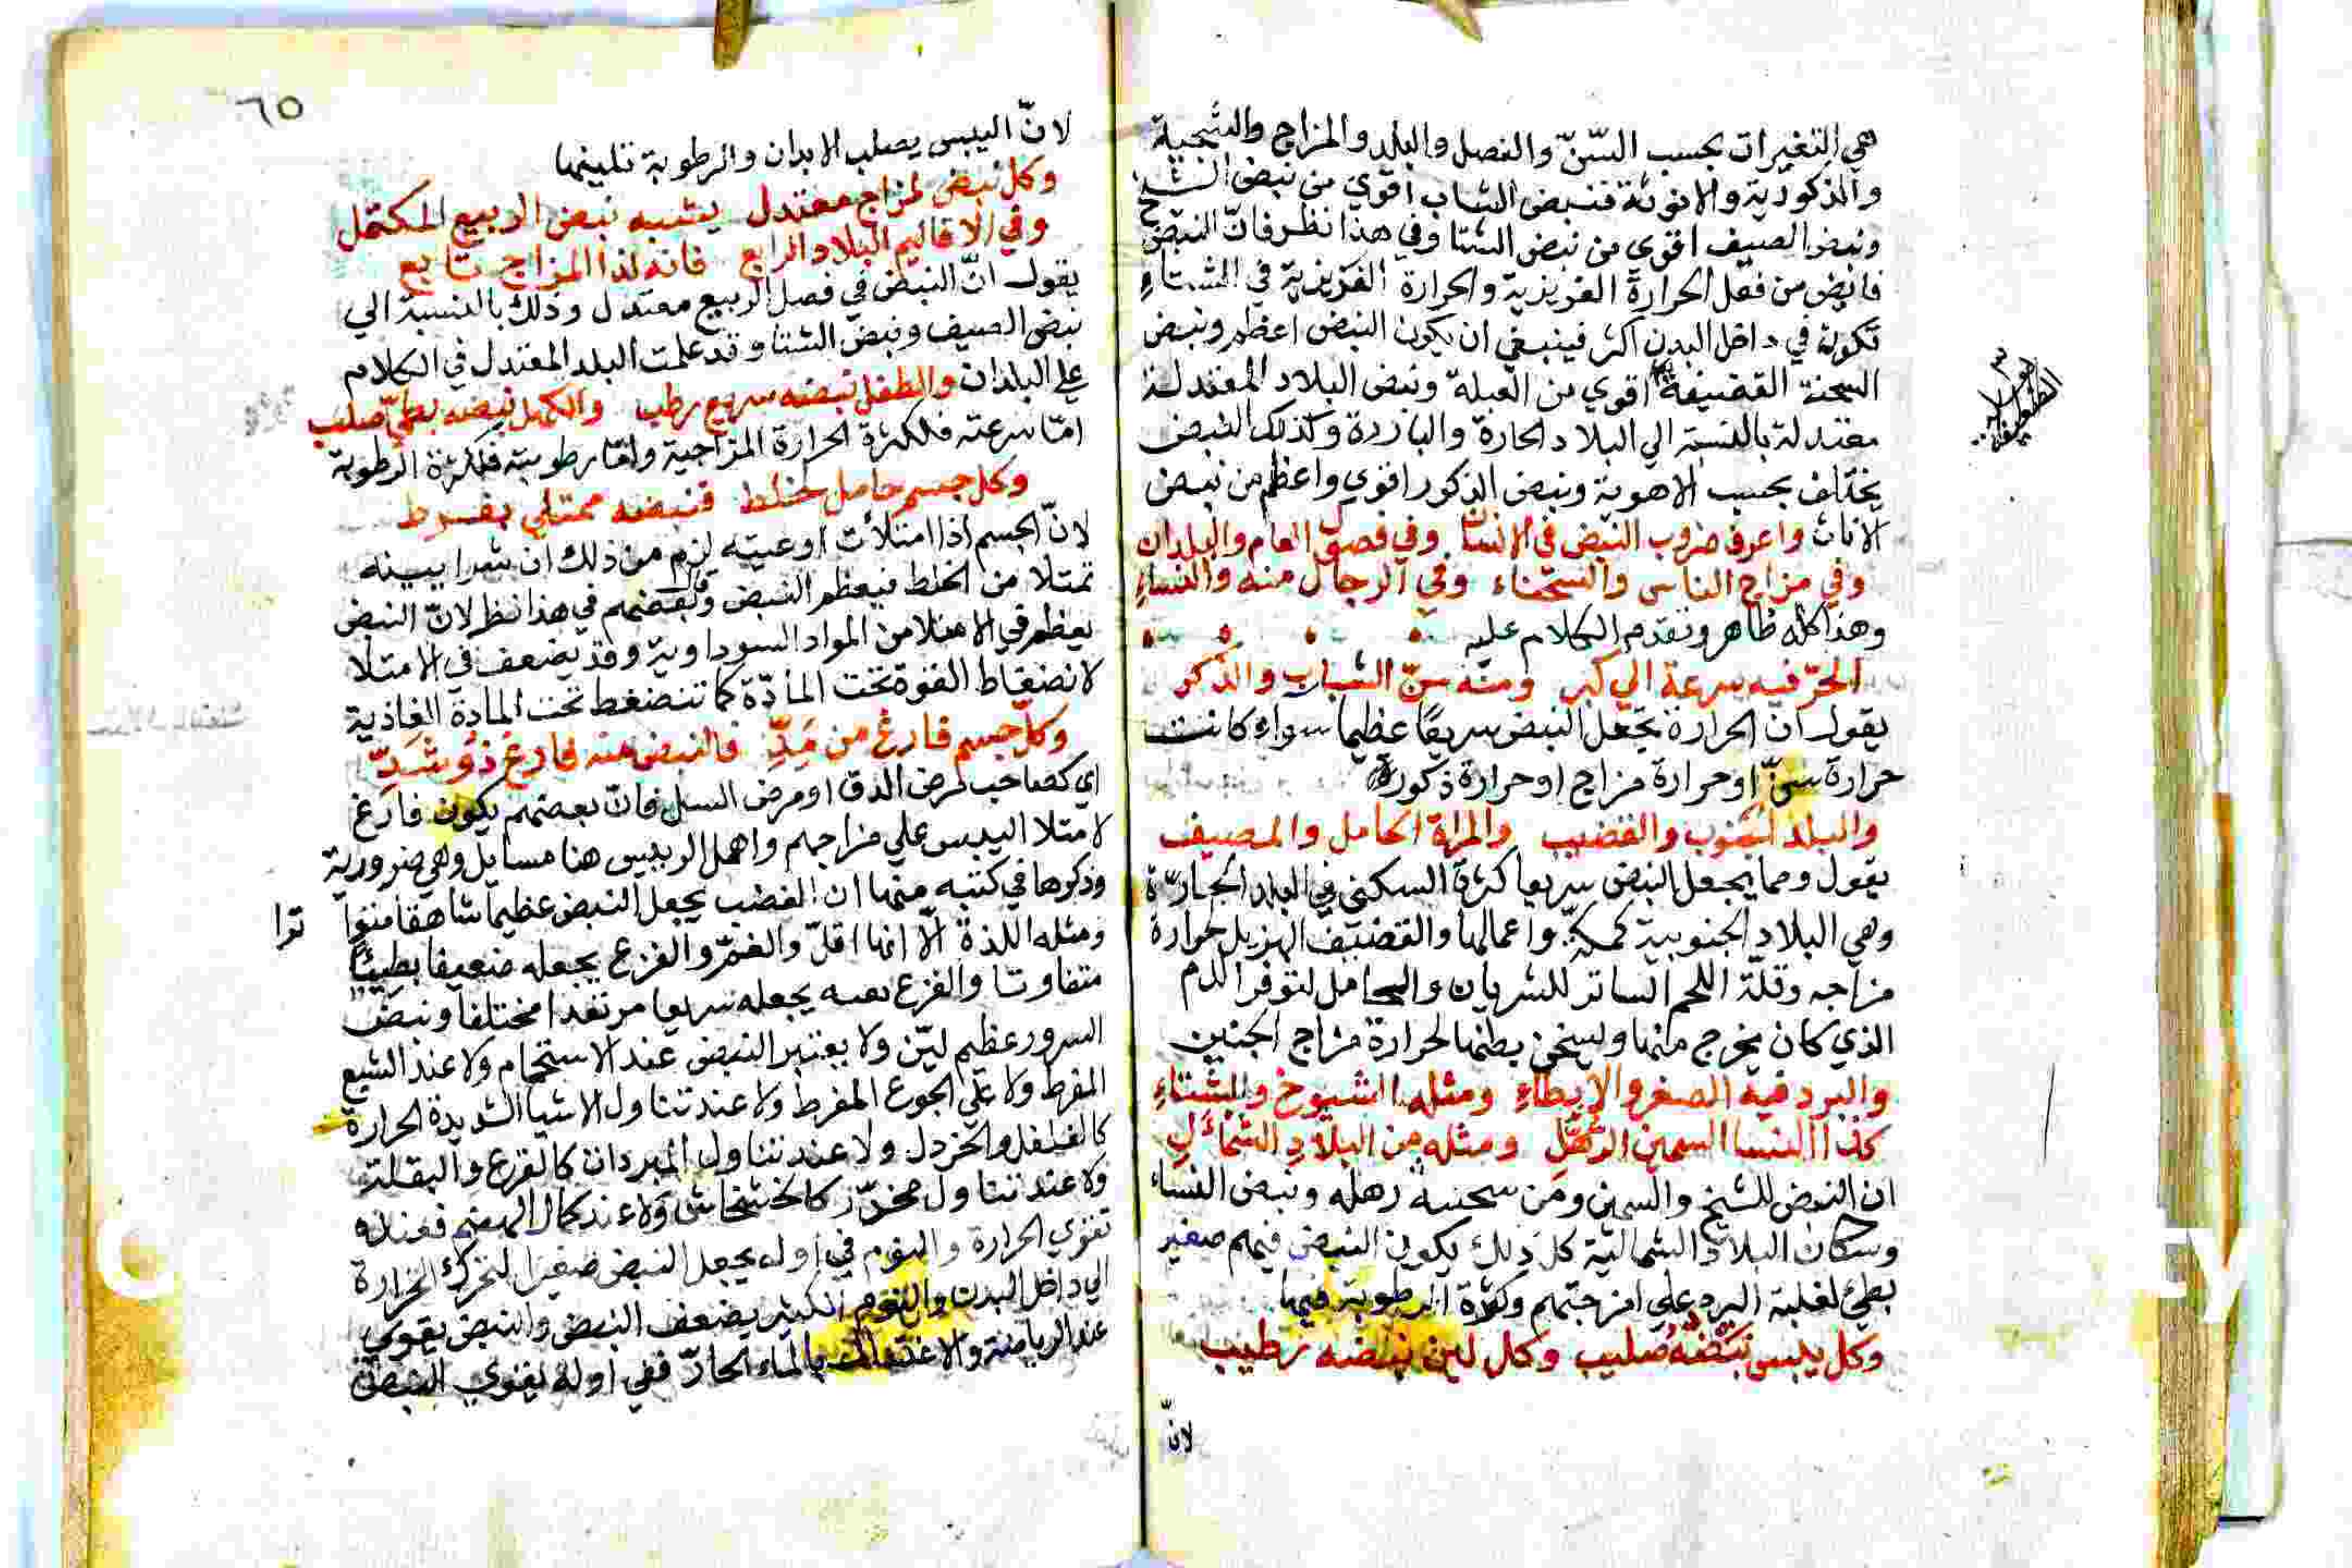 هي التغيرات بحسب السّنّ والفصل والبلد والمزاج والسّحنة
والذكوريّة والانوثة فنبض الشاب اقوي من نبض الشيخ
ونبض الصيف اقوي من نبض الشتا وفي هذا نظر فانّ النبض
فايض من فعل الحرارة الغريزية والحرارة الغريزية في الشتاء
تكون في داخل البدن اكثر فينبغي ان يكون النبض اعظم ونبض
السحنة القضيفة اقوي من العبلة ونبض البلاد المعتدلة
معتدلة بالنسبة الي البلاد الحارة والباردة وكذلك النبض
يختلف بحسب الاهوية ونبض الذكور اقوي واعظم من نبض
الاناث واعرف ضروب النبض في الانسان وفي فصول العام والبلدان
وفي مزاج الناس والسحناء وفي الرجال منه والنساء
وهذا كله ظاهر وتقدم الكلام عليه
الحرّ فيه سرعة الي كبر ومنه سنّ الشباب والذكر
يقول انّ الحرارة تجعل النبض سريعًا عظيما سواء كانت
حرارة سنّ او حرارة مزاج او حرارة ذكورة
والبلد الجنوب والقضيب والمراة الحامل والمصيف
يقول ومما يجعل النبض سريعا كثرة السكني في البلد الحارّة
وهي البلاد الجنوبية كمكّة واعمالها والقضيف الهزيل لحرارة
مزاجه وقلّة اللحم الساتر للشريان والحامل لتوفر الدم
الذي كان يخرج منها ولسخن بطنها لحرارة مزاج الجنين
والبرد فيه الصغر والابطاء ومثله الشيوخ والشتاء
كذا النسا السمين الرّهّل ومثله من البلاد الشمائل
ان النبض للشيخ والسمين ومن سحنته رهله ونبض النساء
وسكان البلاد الشمالية كل ذلك يكون النبض فيهم صغير
بطئ لغلبة البرد علي امزجتهم وكثرة الرطوبة فيها
وكل يابس نبضه صليب وكل لين نبضه رطيب
لانّ
٦٥
لانّ اليبس يصلب الابدان والرطوبة تلينها
وكل نبض لمزاج معتدل يشبه نبض الربيع المكتمل
وفي الاقاليم البلاد الرابع فانه لذا المزاج تابع
يقول انّ النبض في فصل الربيع معتدل وذلك بالنسبة الي
نبض الصيف ونبض الشتا وقد علمت البلد المعتدل في الكلام
علي البلدان والطفل نبضه سريع رطب والكهل نبضه بطئ صلب
امّا سرعته فلكثرة الحرارة المزاجية وامّا رطوبته فلكثرة الرطوبة
وكل جسم حامل لخلط فنبضه ممتلي بفرط
لانّ الجسم اذا امتلأت اوعيته لزم من ذلك ان شرايينه
تمتلا من الخلط فيعظم النبض ولبعضهم في هذا نظر لانّ النبض
يعظم في الامتلا من المواد السوداوية وقد يضعف في الامتلا
لانضغاط القوة تحت المادّة كما تنضغط تحت المادة الغاذية
وكلّ جسم فارغ من مَدِّ فالنبض منه فارغ ذو شَدِّ
اي كصاحب مرض الدق او مرض السل فانّ بعضهم يكون فارغ
لامتلا اليبس علي مزاجهم واهمل الرييس هنا مسايل وهي ضرورية
وذكرها في كتبه منها ان الغضب يجعل النبض عظيما شاهقا متوا
ترا
ومثله اللذة الّا انها اقلّ والغمّ والفزع يجعله ضعيفا بطيئا
متفاوتا والفزع بغتة يجعله سريعا مرتعدا مختلفا ونبض
السرور عظيم ليّن ولا يعتبر النبض عند الاستحمام ولا عند الشبع
المفرط ولا علي الجوع المفرط ولا عند تناول الاشيا الشديدة الحرارة
كالفلفل والخردل ولا عند تناول المبردات كالقرع والبقلة
ولا عند تناول مخدّر كالخشخاش ولا عند كمال الهضم فعنده
تقوي الحرارة والنوم في اوله يجعل النبض صغيرا لتحرك الحرارة
الي داخل البدن والنوم الكثير يضعف النبض والنبض يقوي
عند الرياضة والاغتسال بالماء الحارّ ففي اوله يقوي النبض